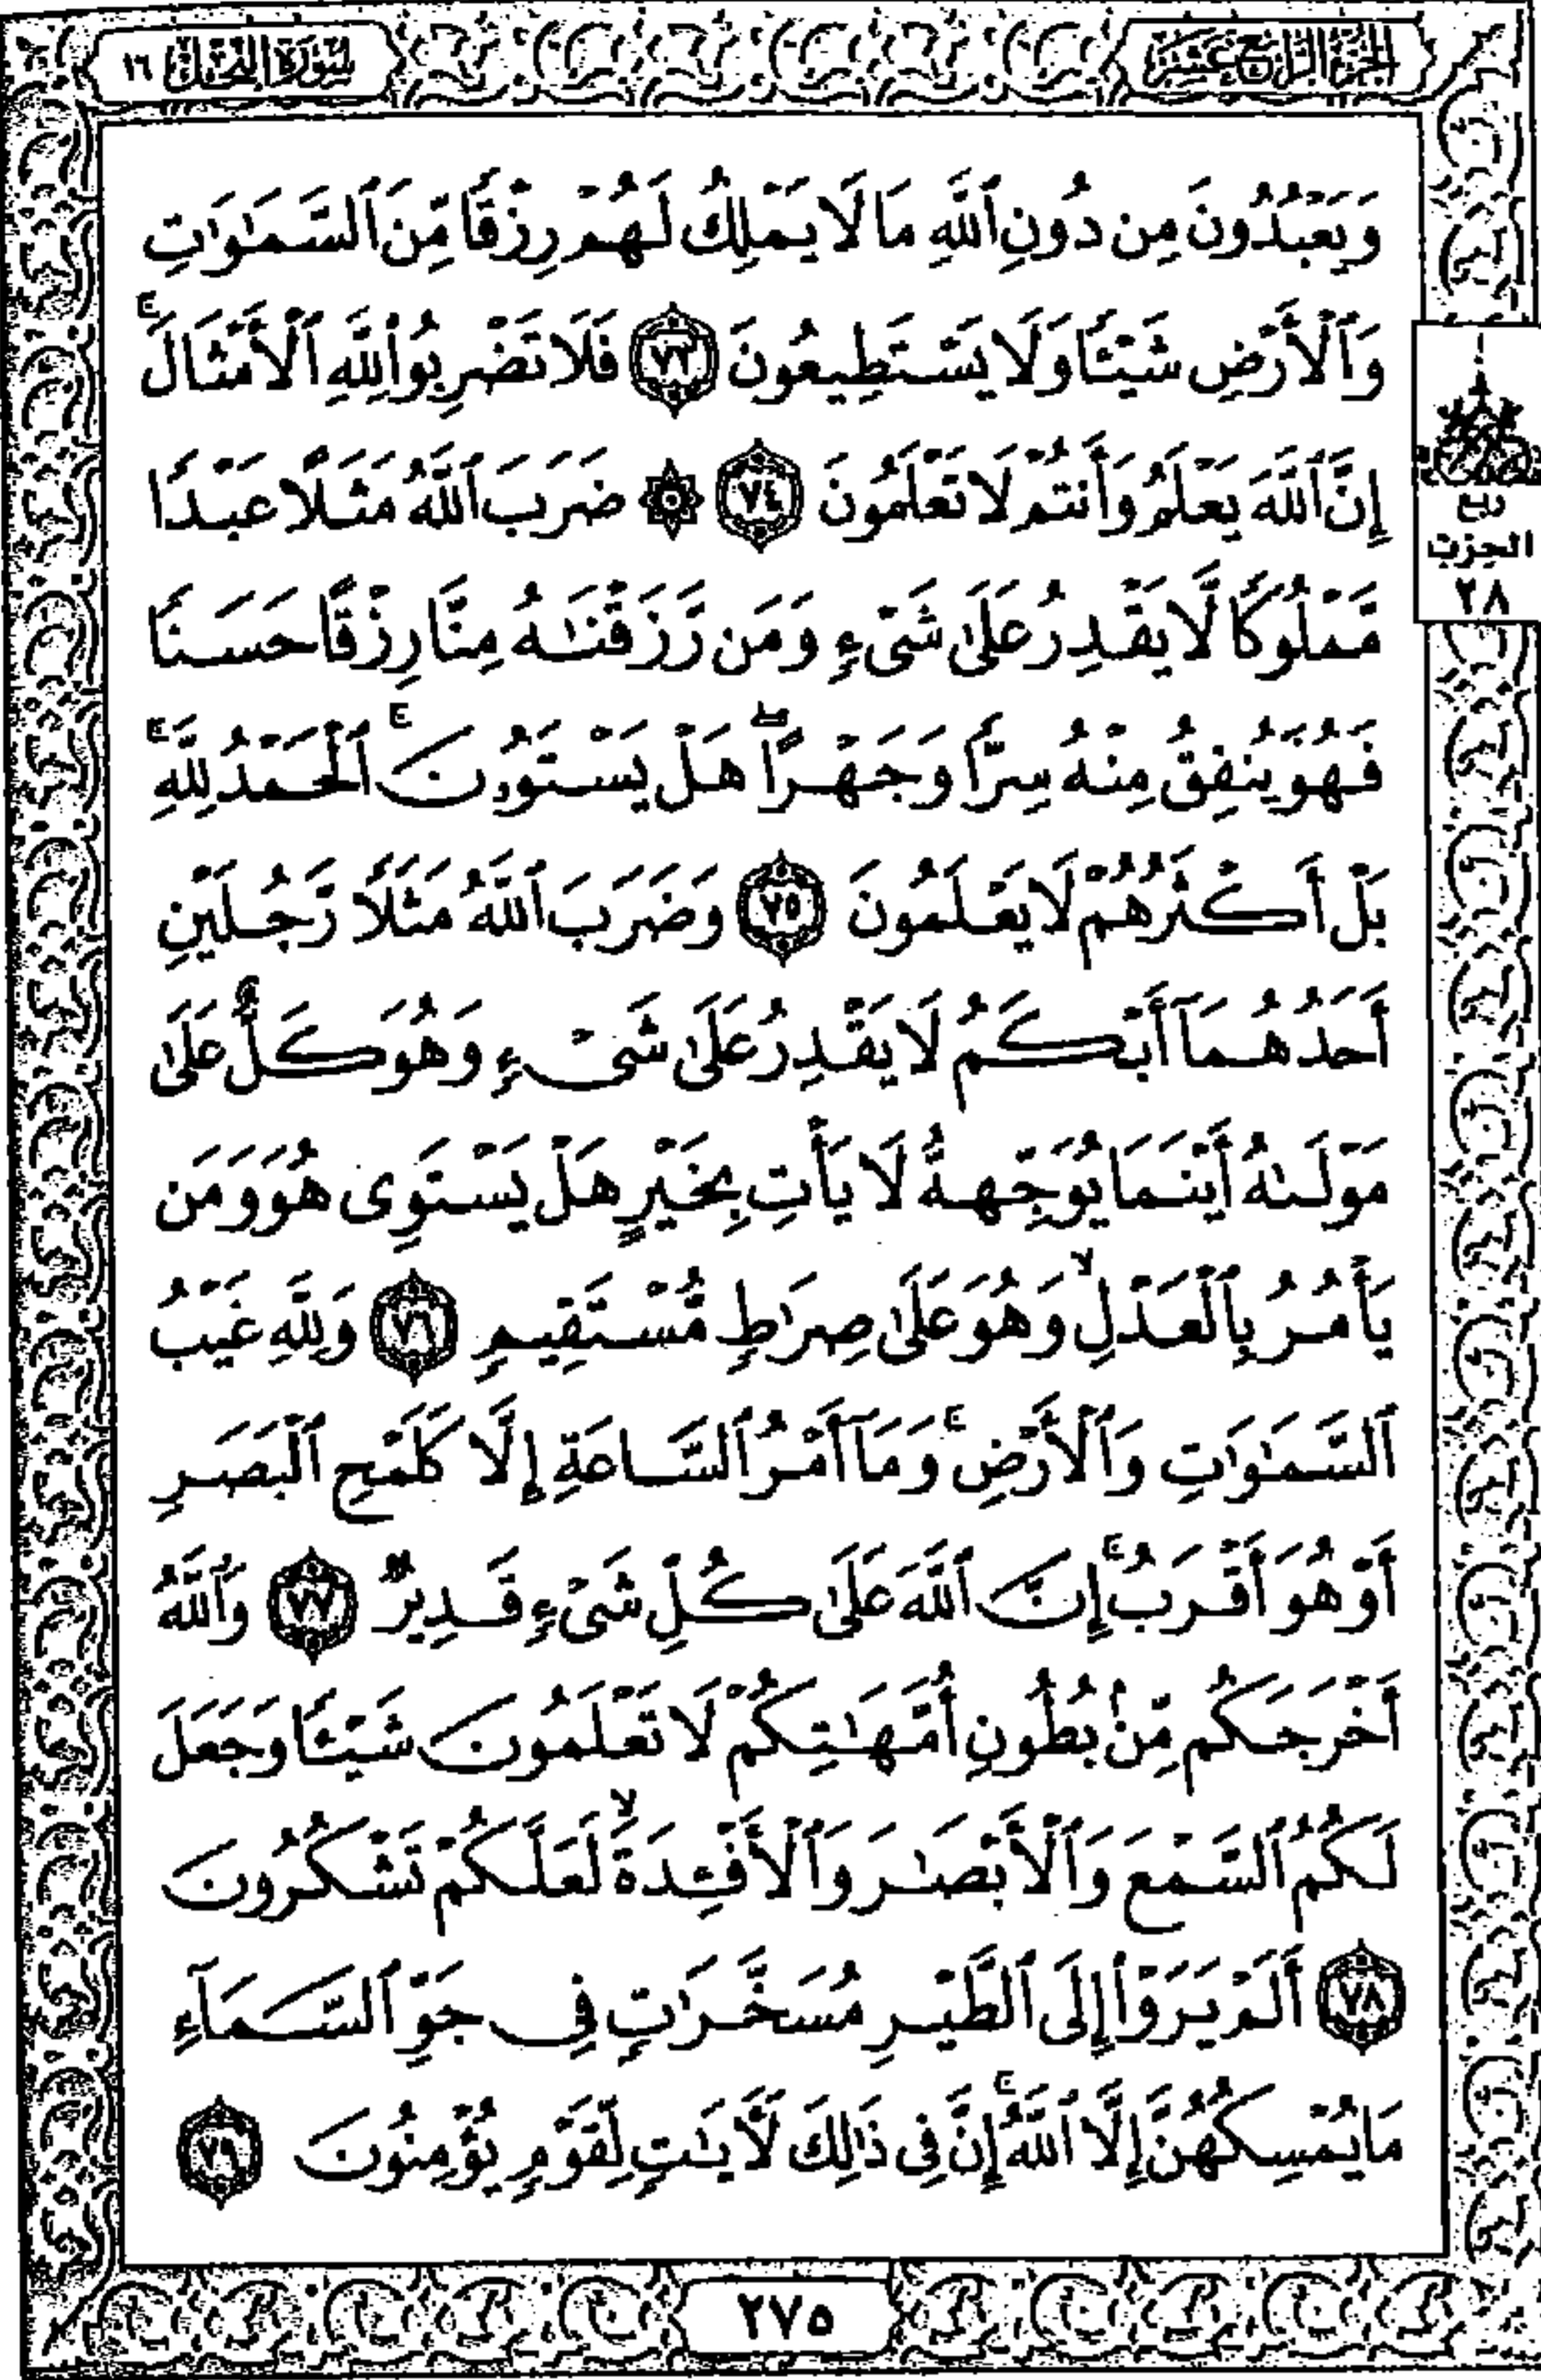 الجزء الرابع عشر
سورة النحل ١٦
وَيَعْبُدُونَ مِن دُونِ ٱللَّهِ مَا لَا يَمْلِكُ لَهُمْ رِزْقًا مِّنَ ٱلسَّمَٰوَٰتِ
وَٱلْأَرْضِ شَيْـًٔا وَلَا يَسْتَطِيعُونَ ٧٣ فَلَا تَضْرِبُوا۟ لِلَّهِ ٱلْأَمْثَالَ ۚ
إِنَّ ٱللَّهَ يَعْلَمُ وَأَنتُمْ لَا تَعْلَمُونَ ٧٤ ۞ ضَرَبَ ٱللَّهُ مَثَلًا عَبْدًا
مَّمْلُوكًا لَّا يَقْدِرُ عَلَىٰ شَىْءٍ وَمَن رَّزَقْنَٰهُ مِنَّا رِزْقًا حَسَنًا
فَهُوَ يُنفِقُ مِنْهُ سِرًّا وَجَهْرًا ۖ هَلْ يَسْتَوُۥنَ ۚ ٱلْحَمْدُ لِلَّهِ ۚ
بَلْ أَكْثَرُهُمْ لَا يَعْلَمُونَ ٧٥ وَضَرَبَ ٱللَّهُ مَثَلًا رَّجُلَيْنِ
أَحَدُهُمَآ أَبْكَمُ لَا يَقْدِرُ عَلَىٰ شَىْءٍ وَهُوَ كَلٌّ عَلَىٰ
مَوْلَىٰهُ أَيْنَمَا يُوَجِّههُّ لَا يَأْتِ بِخَيْرٍ هَلْ يَسْتَوِى هُوَ وَمَن
يَأْمُرُ بِٱلْعَدْلِ ۙ وَهُوَ عَلَىٰ صِرَٰطٍ مُّسْتَقِيمٍ ٧٦ وَلِلَّهِ غَيْبُ
ٱلسَّمَٰوَٰتِ وَٱلْأَرْضِ ۚ وَمَآ أَمْرُ ٱلسَّاعَةِ إِلَّا كَلَمْحِ ٱلْبَصَرِ
أَوْ هُوَ أَقْرَبُ ۚ إِنَّ ٱللَّهَ عَلَىٰ كُلِّ شَىْءٍ قَدِيرٌ ٧٧ وَٱللَّهُ
أَخْرَجَكُم مِّنۢ بُطُونِ أُمَّهَٰتِكُمْ لَا تَعْلَمُونَ شَيْـًٔا وَجَعَلَ
لَكُمُ ٱلسَّمْعَ وَٱلْأَبْصَٰرَ وَٱلْأَفْـِٔدَةَ ۙ لَعَلَّكُمْ تَشْكُرُونَ
٧٨ أَلَمْ يَرَوْا۟ إِلَى ٱلطَّيْرِ مُسَخَّرَٰتٍ فِى جَوِّ ٱلسَّمَآءِ
مَا يُمْسِكُهُنَّ إِلَّا ٱللَّهُ ۚ إِنَّ فِى ذَٰلِكَ لَـَٔايَٰتٍ لِّقَوْمٍ يُؤْمِنُونَ ٧٩
ربع
الحزب
٢٨
٢٧٥